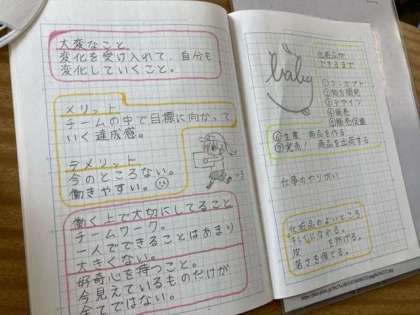 大変なこと
変化を受け入れて、自分も
変化していくこと。
メリット
チームの中で目標に向かって
いく達成感。
デメリット
今のところない。
働きやすい。
働く上で大切にしてること
チームワーク。
一人でできることはあまり
大きくない。
好奇心を持つこと。
今見えているものだけが
全てではない。
baby
化粧品が
できるまで
①コンセプト
②処方開発
③デザイン
⑥生産 商品を作る
⑦発売! 商品を出荷する
仕事のやりがい
化粧品のよいところ
きれいになれる。
若さを保てる。